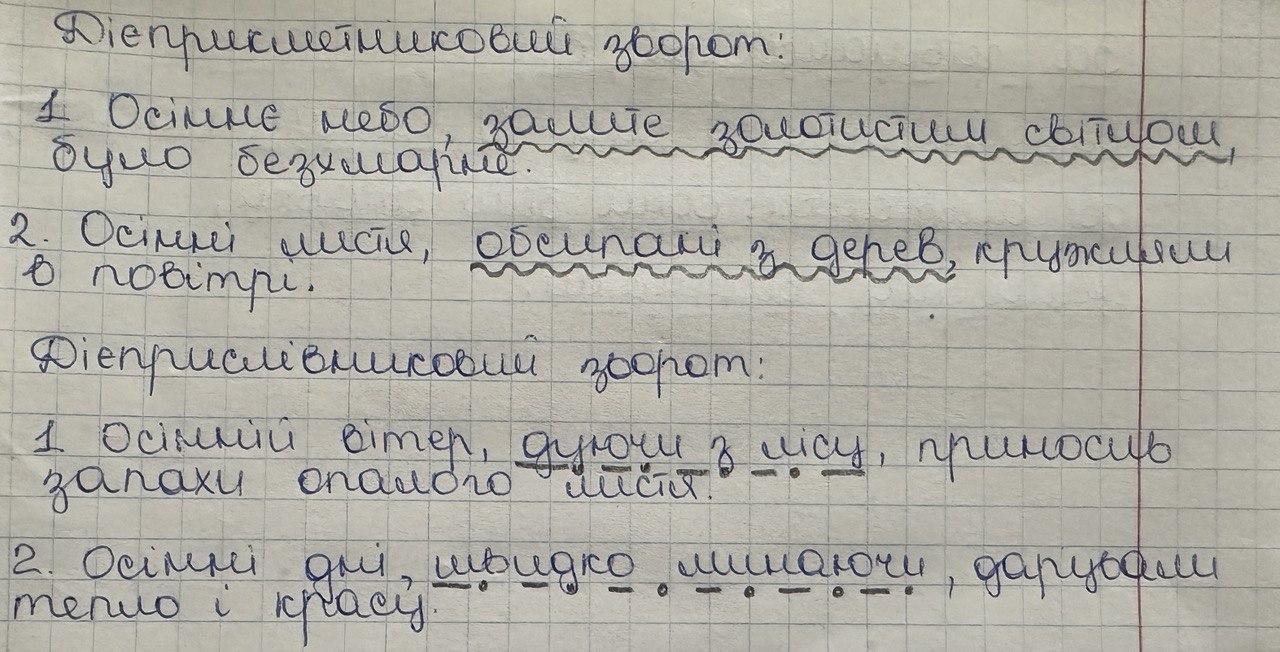 Дієприкметниковий зворот:
1 Осіннє небо, залите золотистим світлом,
було безхмарне.
2. Осінні листя, обсипані з дерев, кружляли
в повітрі.
Дієприслівниковий зворот:
1 Осінній вітер, дуючи з лісу, приносив
запахи опалого листя.
2. Осінні дні, швидко минаючи, дарували
тепло і красу.